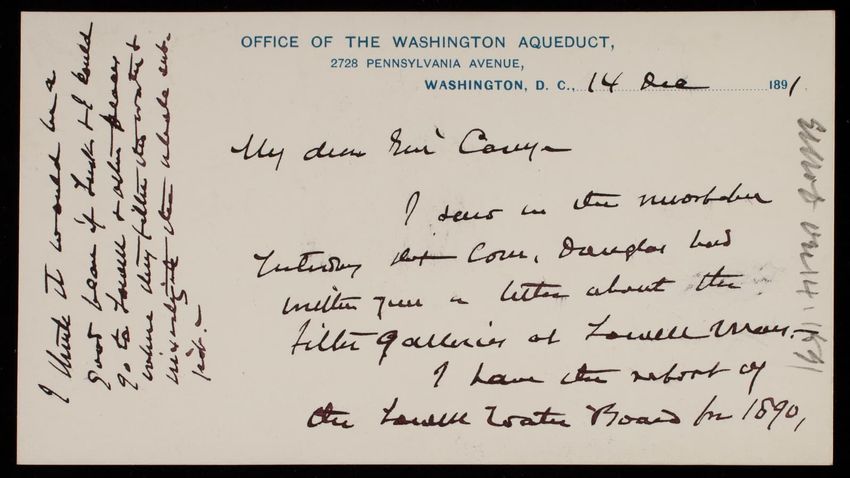 OFFICE OF THE WASHINGTON AQUEDUCT,
2728 PENNSYLVANIA AVENUE,
WASHINGTON, D. C., 14 Dec 1891
My dear Gen'l Casey-
I saw in the newspaper
yesterday that Com. Douglas had
written you a letter about the
filter galleries at Lowell Mass.-
I have the report of
the Lowell Water Board for 1890,
I think it would be a
good plan if Lusk & I could
go to Lowell & other places
where they filter the water &
investigate the whole sub-
ject.-
14. 1891